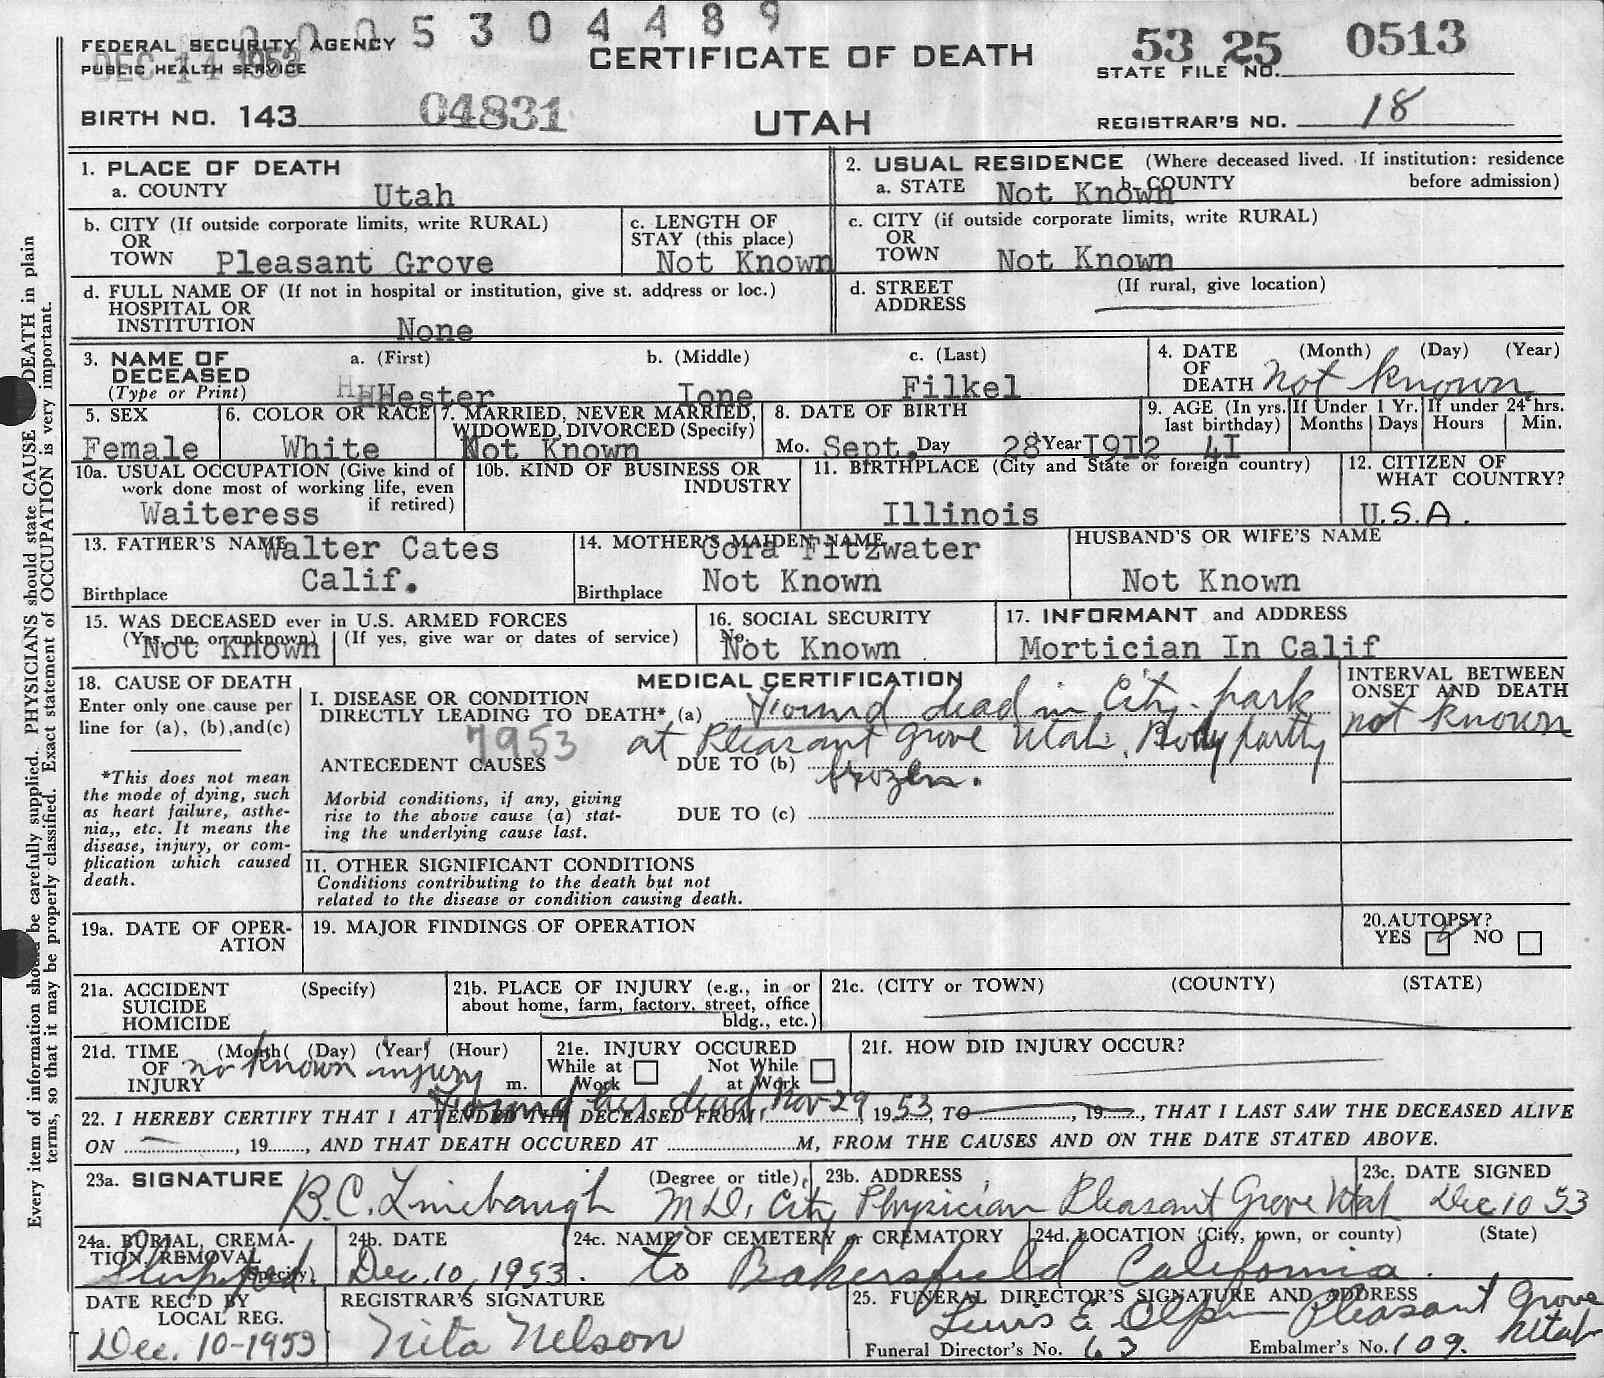 2005304489
FEDERAL SECURITY AGENCY
PUBLIC HEALTH SERVICE
DEC 14 1953
CERTIFICATE OF DEATH
53 25 0513
STATE FILE NO.
BIRTH NO. 143 04831
UTAH
REGISTRAR'S NO. 18
1. PLACE OF DEATH
a. COUNTY Utah
2. USUAL RESIDENCE (Where deceased lived. If institution: residence before admission)
a. STATE Not Known b. COUNTY
b. CITY (If outside corporate limits, write RURAL)
OR
TOWN Pleasant Grove
c. LENGTH OF
STAY (this place)
Not Known
c. CITY (if outside corporate limits, write RURAL)
OR
TOWN Not Known
d. FULL NAME OF (If not in hospital or institution, give st. address or loc.)
HOSPITAL OR
INSTITUTION None
d. STREET (If rural, give location)
ADDRESS
3. NAME OF
DECEASED
(Type or Print)
a. (First) b. (Middle) c. (Last)
Hester Ione Filkel
4. DATE (Month) (Day) (Year)
OF
DEATH not known
5. SEX
Female
6. COLOR OR RACE
White
7. MARRIED, NEVER MARRIED,
WIDOWED, DIVORCED (Specify)
Not Known
8. DATE OF BIRTH
Mo. Sept. Day 28 Year I9I2
9. AGE (In yrs. last birthday)
4I
If Under 1 Yr.
Months Days
If under 24 hrs.
Hours Min.
10a. USUAL OCCUPATION (Give kind of
work done most of working life, even
if retired)
Waiteress
10b. KIND OF BUSINESS OR
INDUSTRY
11. BIRTHPLACE (City and State or foreign country)
Illinois
12. CITIZEN OF
WHAT COUNTRY?
U.S.A.
13. FATHER'S NAME Walter Cates
Birthplace Calif.
14. MOTHER'S MAIDEN NAME Cora Fitzwater
Birthplace Not Known
HUSBAND'S OR WIFE'S NAME
Not Known
15. WAS DECEASED ever in U.S. ARMED FORCES
(Yes, no or unknown) (If yes, give war or dates of service)
Not Known
16. SOCIAL SECURITY
No.
Not Known
17. INFORMANT and ADDRESS
Mortician In Calif
18. CAUSE OF DEATH
Enter only one cause per
line for (a), (b),and(c)
*This does not mean
the mode of dying, such
as heart failure, asthe-
nia,, etc. It means the
disease, injury, or com-
plication which caused
death.
MEDICAL CERTIFICATION
I. DISEASE OR CONDITION
DIRECTLY LEADING TO DEATH* (a) Found dead in City park
at Pleasant Grove Utah. Body partly
frozen.
7953
ANTECEDENT CAUSES DUE TO (b)
Morbid conditions, if any, giving
rise to the above cause (a) stat-
ing the underlying cause last.
DUE TO (c)
INTERVAL BETWEEN
ONSET AND DEATH
not known
II. OTHER SIGNIFICANT CONDITIONS
Conditions contributing to the death but not
related to the disease or condition causing death.
19a. DATE OF OPER-
ATION
19. MAJOR FINDINGS OF OPERATION
20. AUTOPSY?
YES NO
21a. ACCIDENT (Specify)
SUICIDE
HOMICIDE
21b. PLACE OF INJURY (e.g., in or
about home, farm, factory, street, office
bldg., etc.)
21c. (CITY or TOWN) (COUNTY) (STATE)
21d. TIME (Month( (Day) (Year) (Hour)
OF
INJURY m.
no known injury
21e. INJURY OCCURED
While at Work Not While at Work
21f. HOW DID INJURY OCCUR?
Found her dead Nov 29
22. I HEREBY CERTIFY THAT I ATTENDED THE DECEASED FROM 1953, TO , 19 , THAT I LAST SAW THE DECEASED ALIVE
ON , 19 , AND THAT DEATH OCCURED AT M, FROM THE CAUSES AND ON THE DATE STATED ABOVE.
23a. SIGNATURE (Degree or title)
B.C. Linebaugh M.D. City Physician
23b. ADDRESS
Pleasant Grove Utah
23c. DATE SIGNED
Dec 10 53
24a. BURIAL, CREMA-
TION, REMOVAL
(Specify)
Shipped
24b. DATE
Dec. 10, 1953.
24c. NAME OF CEMETERY or CREMATORY
24d. LOCATION (City, town, or county) (State)
to Bakersfield California.
DATE REC'D BY
LOCAL REG.
Dec. 10-1953
REGISTRAR'S SIGNATURE
Nita Nelson
25. FUNERAL DIRECTOR'S SIGNATURE AND ADDRESS
E. Pleasant Grove
Utah
Funeral Director's No. 63 Embalmer's No. 109.
Every item of information should be carefully supplied. PHYSICIANS should state CAUSE OF DEATH in plain
terms, so that it may be properly classified. Exact statement of OCCUPATION is very important.